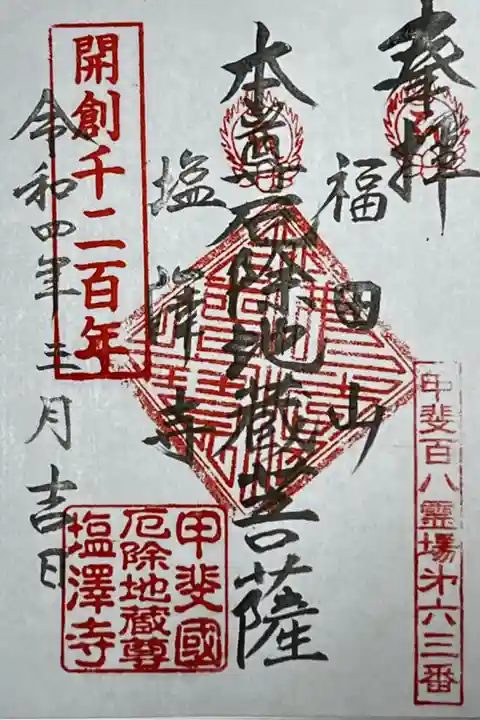 奉拝
甲斐百八靈場㐧六三番
福田山
本尊厄除地蔵菩薩
塩澤寺
開創千二百年
令和四年三月吉日
甲斐國
厄除地蔵尊
塩澤寺